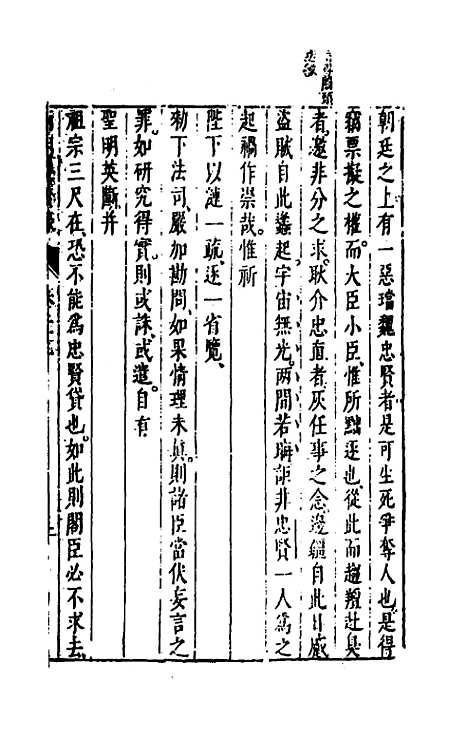 朝廷之上有一惡璫魏忠賢者是可生死爭奪人也是得
竊票擬之權而大臣小臣惟所黜逐也從此而趨羶赴臭
者邀非分之求耿介忠直者灰任事之念邊疆自此日蹙
盜賊自此蠭起宇宙無光兩間若晦詎非忠賢一人為之
起禍作祟哉惟祈
陛下以漣一疏逐一省覽
勑下法司嚴加勘問如果情理未真則諸臣當伏妄言之
罪如研究得實則或誅或遣自有
聖明英斷并
祖宗三尺在恐不能為忠賢貸也如此則閣臣必不求去